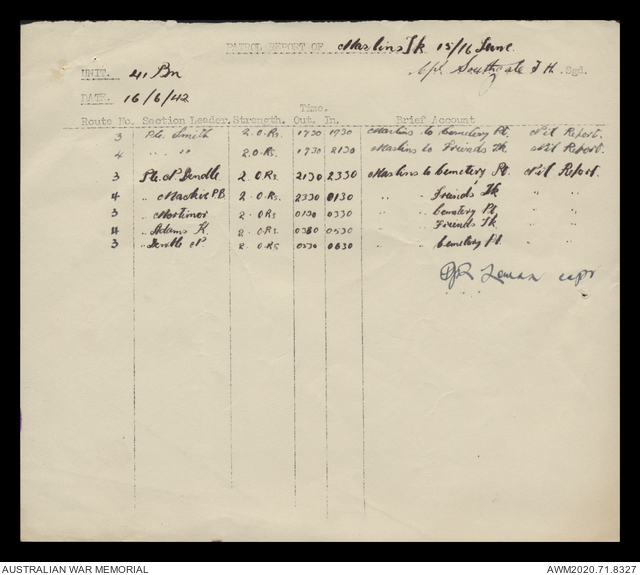 PATROL REPORT OF Maslins Tk 15/16 June.
UNIT. 41 Bn Cpl Southgate F H. Sgd.
DATE. 16/6/42
Time.
Route No. Section Leader. Strength. Out. In. Brief Account
3 Pte. Smith 2. O.Rs. 1730 1930 Maslins to Cemetery Pt. Nil Report.
4 " " 2 O.Rs. 1930 2130 Maslins to Friends Tk Nil Report.
3 Pte. P Dendle 2. O.Rs. 2130 2330 Maslins to Cemetery Pt. Nil Report.
4 " Mackie P.B 2. O.Rs. 2330 0130 " " Friends Tk " "
3 " Mortimor 2. O.Rs. 0130 0330 " " Cemetery Pt. " "
4 " Adams K. 2. O.Rs. 0330 0530 " " Friends Tk. " "
3 " Dendle P 2. O.Rs. 0530 0630 " " Cemetery Pt. " "
Capt
AUSTRALIAN WAR MEMORIAL AWM2020.71.8327